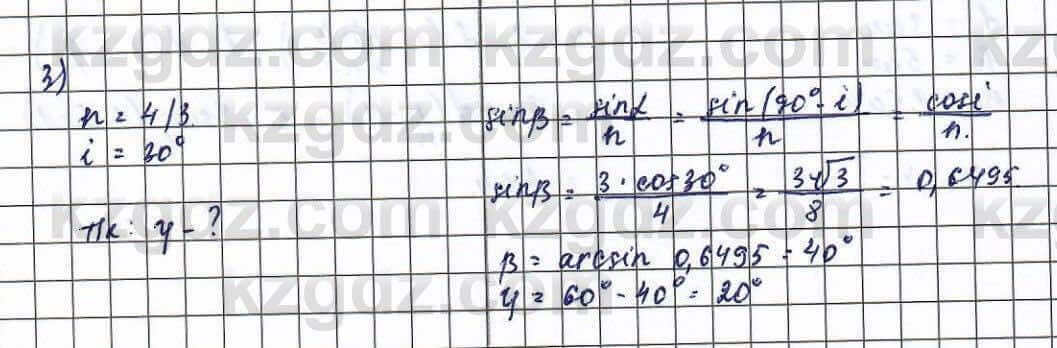 kzgdz.com kzgdz.com
3)
n = 4/3
i = 30°
Тк: y - ?
sinβ = sinα/n = sin(90°-i)/n = cosi/n.
sinβ = 3·cos30°/4 = 3√3/8 = 0,6495
β = arcsin 0,6495 = 40°
y = 60° - 40° = 20°